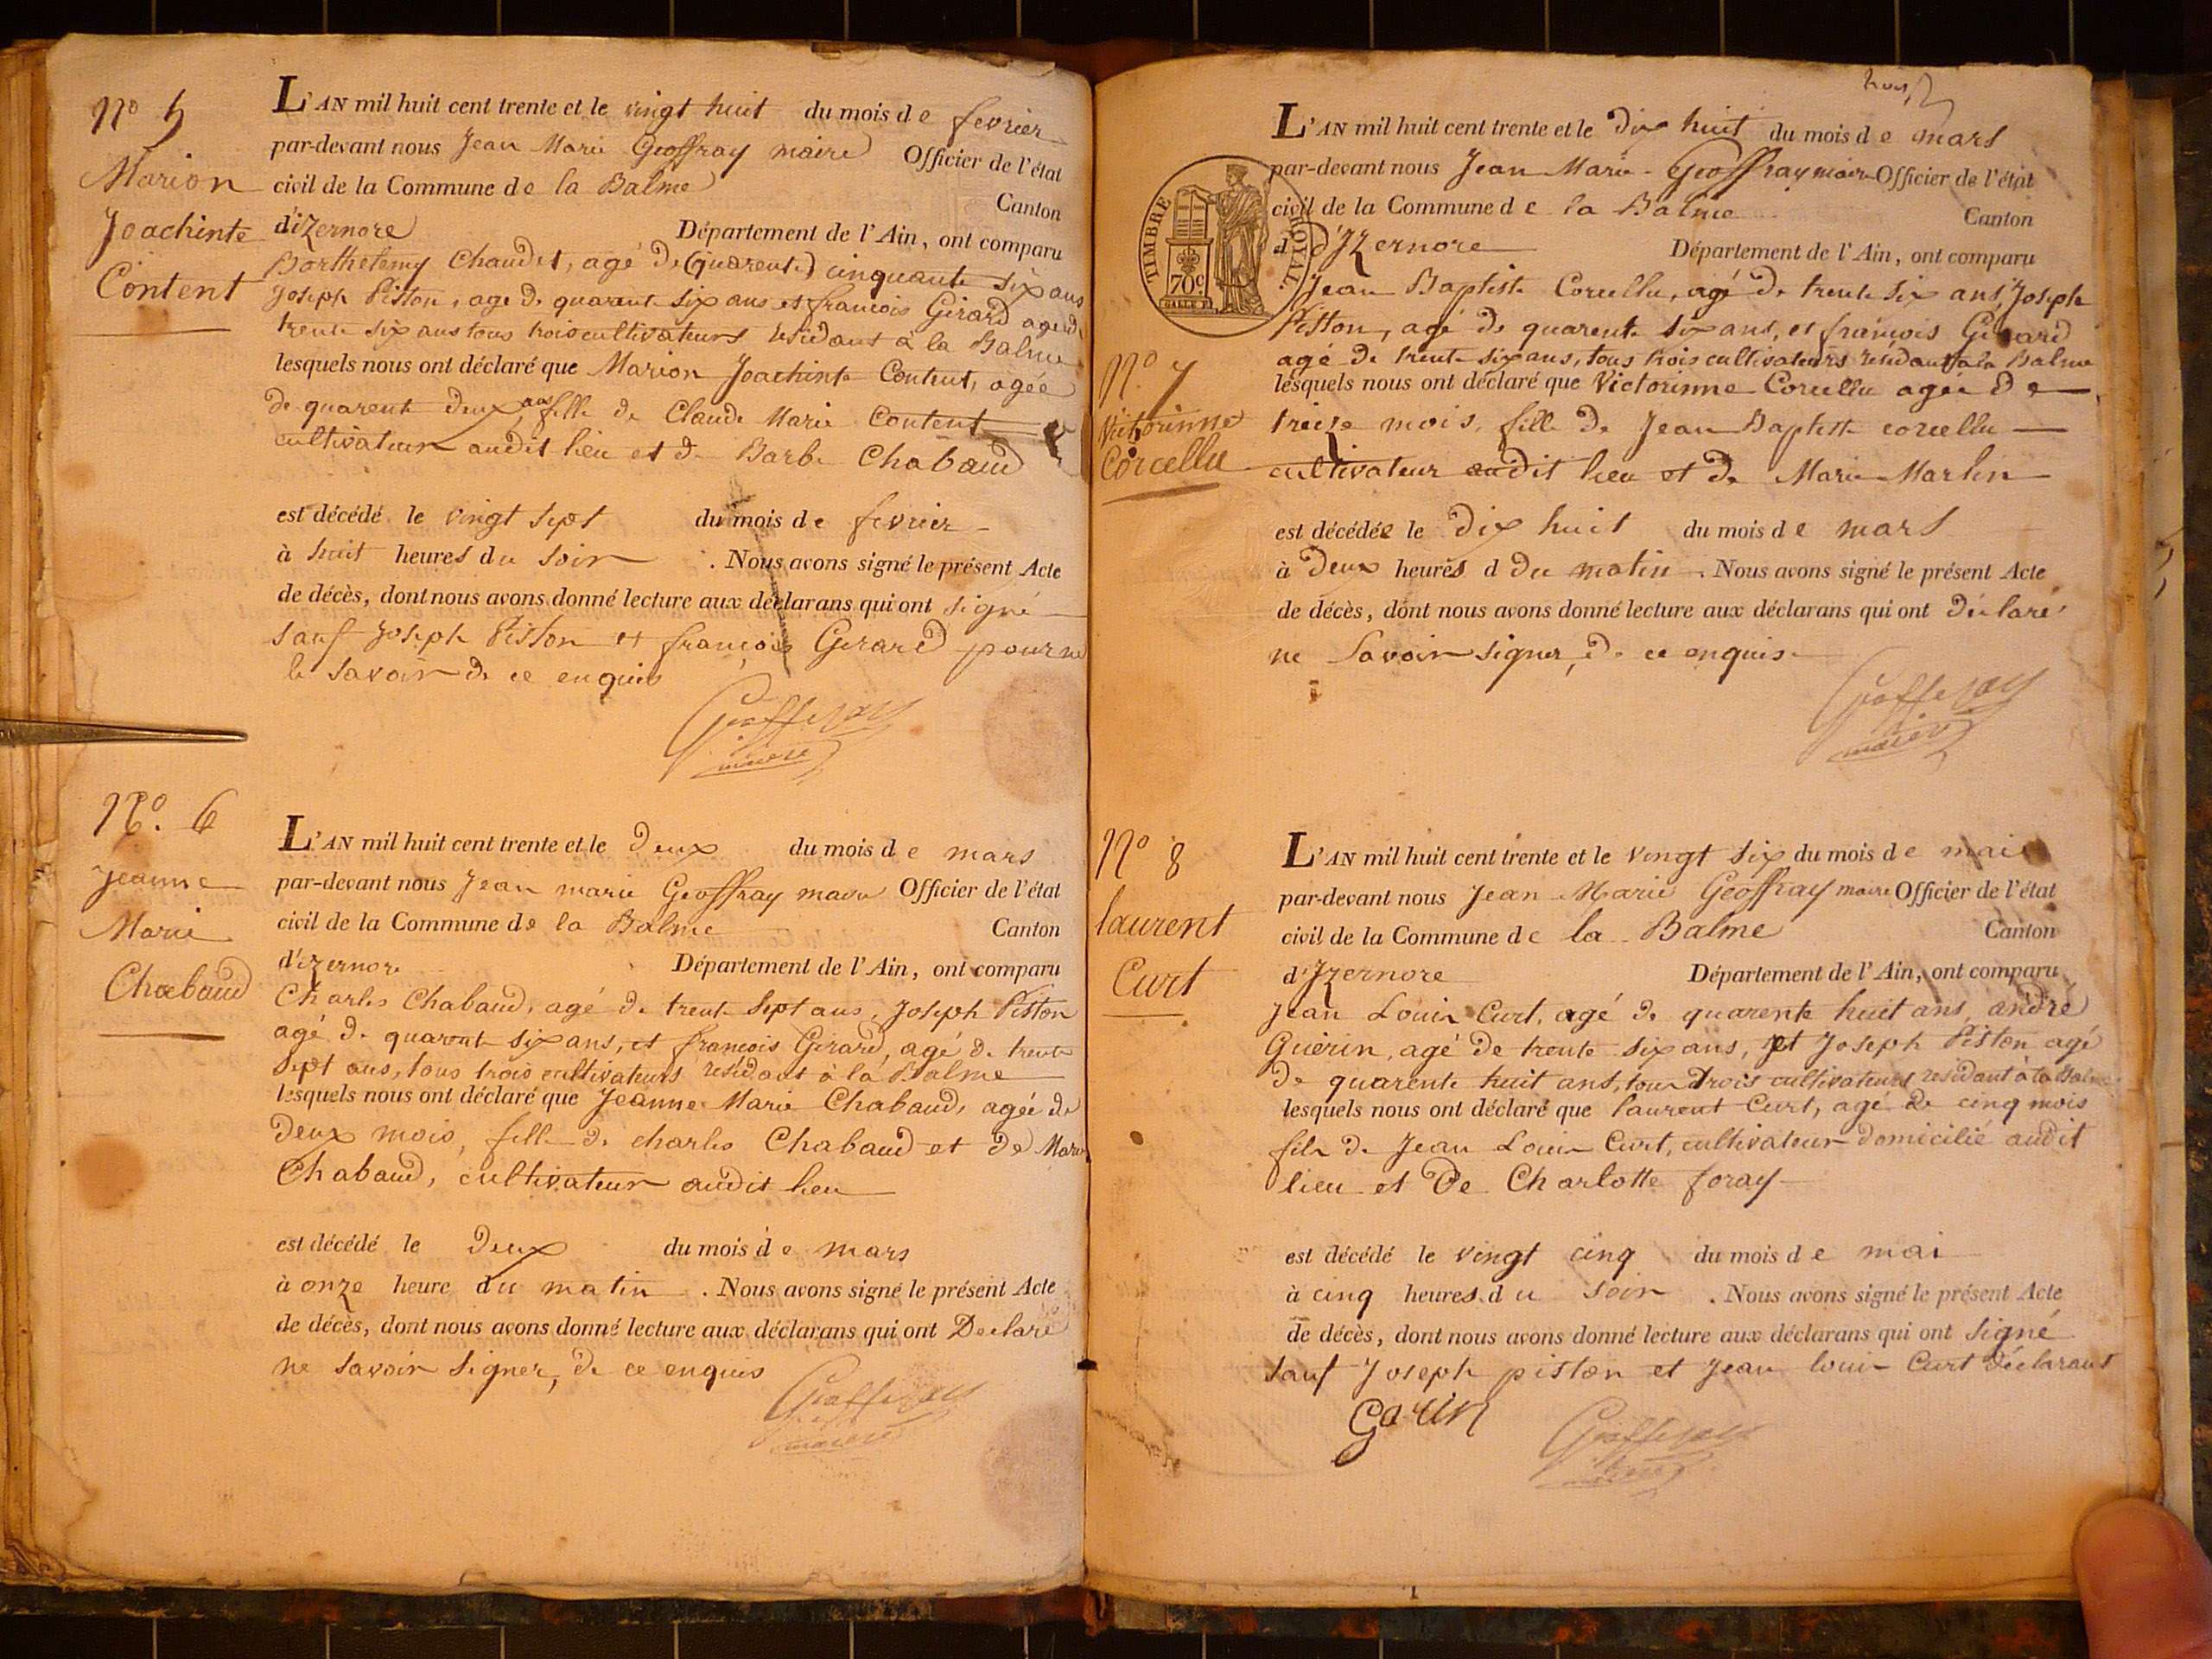 No 5
Marion
Joachinte
Content
L'AN mil huit cent trente et le vingt huit du mois de fevrier
par-devant nous Jean Marie Geoffray maire Officier de l'état
civil de la Commune de la Balme Canton
d'izernore Département de l'Ain, ont comparu
Borthelemy Chaudet, agé de (quarente) cinquante six ans
Joseph Piston, agé de quarente six ans et francois Girard agé de
trente six ans tous trois cultivateurs residant a la Balme
lesquels nous ont déclaré que Marion Joachinte Content, agée
de quarente deux ans fille de Claude Marie Content
cultivateur audit lieu et de Barbe Chabaud
est décédé le vingt sept du mois de fevrier
à huit heures du soir . Nous avons signé le présent Acte
de décès, dont nous avons donné lecture aux déclarans qui ont signé
sauf Joseph Piston et francois Girard pour ne
le savoir de ce enquis
Geofferay
maire
No. 6
Jeanne
Marie
Chabaud
L'AN mil huit cent trente et le deux du mois de mars
par-devant nous Jean marie Geoffray maire Officier de l'état
civil de la Commune de la Balme Canton
d'izernore Département de l'Ain, ont comparu
Charles Chabaud, agé de trente sept ans, Joseph Piston
agé de quarent six ans, et francois Girard, agé de trente
sept ans, tous trois cultivateurs residant à la Balme
lesquels nous ont déclaré que Jeanne Marie Chabaud, agée de
deux mois, fille de charles Chabaud et de Marie
Chabaud, cultivateur audit lieu
est décédé le deux du mois de mars
à onze heure du matin . Nous avons signé le présent Acte
de décès, dont nous avons donné lecture aux déclarans qui ont Declaré
ne savoir signer, de ce enquis
Geofferay
maire
TIMBRE ROYAL.
70c
No. 7
Victorinne
Corcellu
L'AN mil huit cent trente et le dix huit du mois de mars
par-devant nous Jean Marie Geoffray maire Officier de l'état
civil de la Commune de la Balme Canton
d d'Izernore Département de l'Ain, ont comparu
Jean Baptiste Corcellu, agé de trente six ans, Joseph
Piston, agé de quarente six ans, et francois Girard
agé de trente six ans, tous trois cultivateurs residant a la Balme
lesquels nous ont déclaré que Victorinne Corcellu agée de
treize mois, fille de Jean Baptiste corcellu
cultivateur audit lieu et de Marie Marlin
est décédée le Dix huit du mois de mars
à Deux heures d du matin . Nous avons signé le présent Acte
de décès, dont nous avons donné lecture aux déclarans qui ont Déclaré
ne Savoir signer, de ce enquis
Geofferay
maire
No 8
laurent
Curt
L'AN mil huit cent trente et le vingt six du mois de mai
par-devant nous Jean Marie Geoffray maire Officier de l'état
civil de la Commune de la Balme Canton
d'Izernore Département de l'Ain, ont comparu
Jean Louis Curt, agé de quarente huit ans, andré
Guérin, agé de trente six ans, et Joseph Piston agé
de quarente huit ans, tous trois cultivateurs residant à la Balme
lesquels nous ont déclaré que laurent Curt, agé de cinq mois
fils de Jean Louis Curt, cultivateur domicilié audit
lieu et De Charlotte foray
est décédé le vingt cinq du mois de mai
à cinq heures du soir . Nous avons signé le présent Acte
de décès, dont nous avons donné lecture aux déclarans qui ont signé
sauf Joseph piston et Jean louis Curt déclarant
Garin
Geofferay
maire